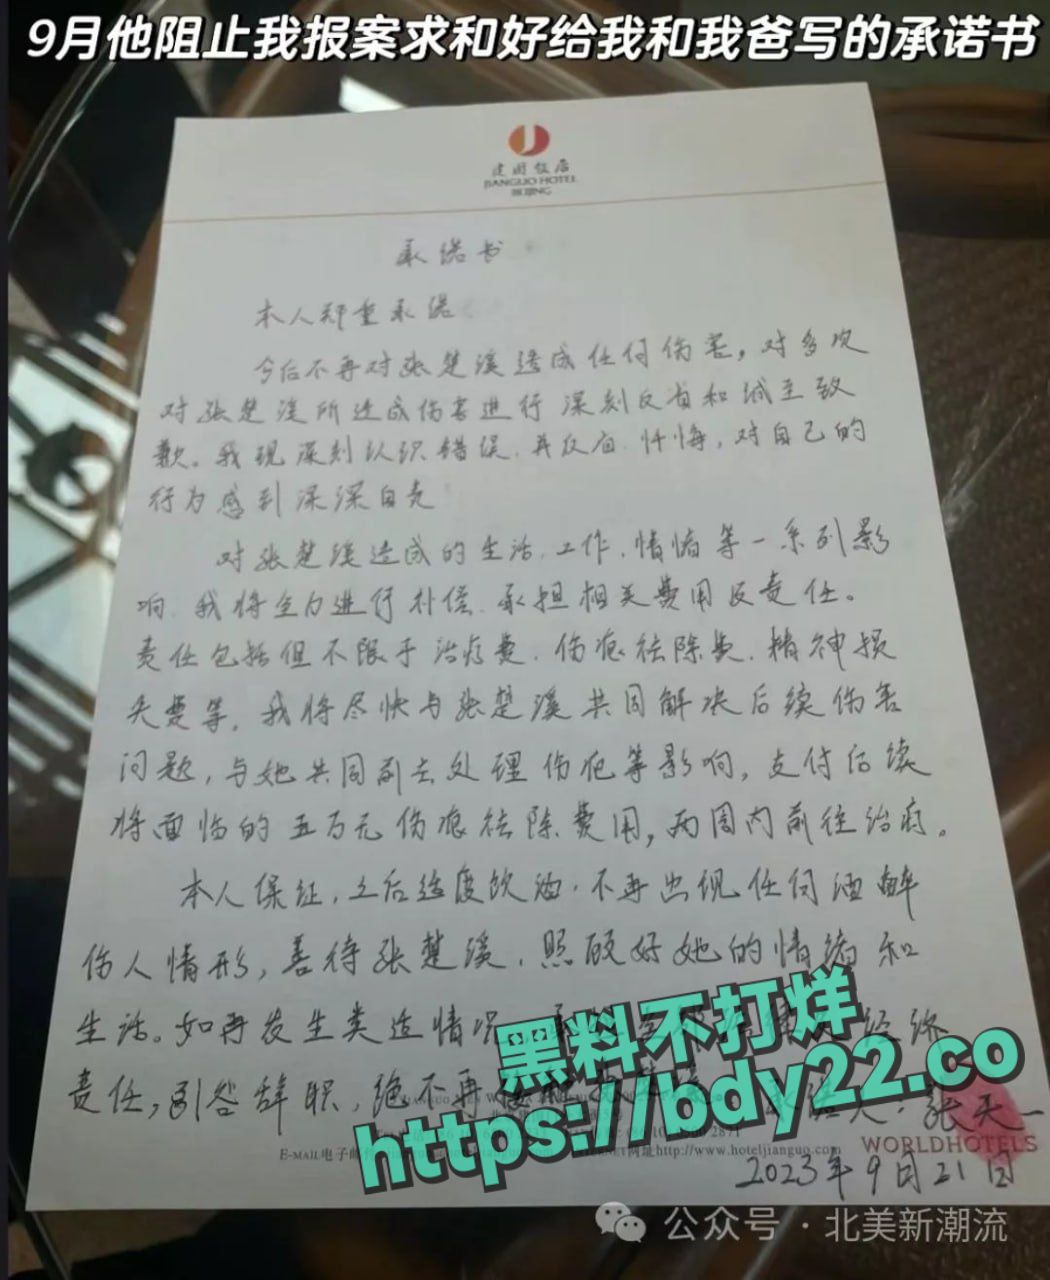 9月他阻止我报案求和好给我和我爸写的承诺书
建国饭店
JIANGUO HOTEL
承诺书
本人郑重承诺
今后不再对张楚溪造成任何伤害，对多次
对张楚溪所造成伤害进行深刻反省和诚至致
歉。我现深刻认识错误、并反省、忏悔，对自己的
行为感到深深自责
对张楚溪造成的生活、工作、情绪等一系列影
响、我将全力进行补偿、承担相关费用及责任。
责任包括但不限于治疗费、伤疤祛除费、精神损
失费等，我将尽快与张楚溪共同解决后续伤害
问题，与她共同前去处理伤疤等影响，支付后续
将面临的五万元伤疤祛除费用，两周内前往治疗。
本人保证，之后适度饮酒、不再出现任何酒醉
伤人情形，善待张楚溪、照顾好她的情绪和
生活。如再发生类造情况
责任，引咎辞职，绝不再
黑料不打烊
https://bdy22.co
承诺人：张天一
E-MAIL电子邮件
网址http://www.hoteljianguo.com
WORLDHOTELS
2023年9月21日
公众号·北美新潮流